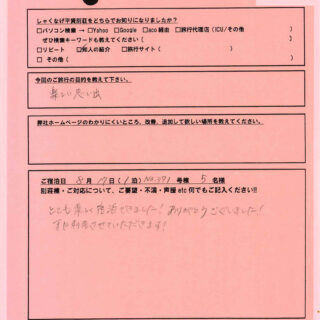 しゃくなげ平貸別荘をどちらでお知りになりましたか？
□パソコン検索 → □Yahoo □Google □aco 経由 □旅行代理店 (ICU/その他 )
ぜひ検索キーワードも教えてください ( )
□リピート ☑知人の紹介 □旅行サイト( )
□ その他 ( )
今回のご旅行の目的を教えて下さい。
楽しい思い出
弊社ホームページのわかりにくいところ、改善、追加して欲しい場所を教えてください。
ご宿泊日 8 月 17 日 ( 1 泊) No.391 号棟 5 名様
別荘検・ご対応について、ご要望・不満・声援 etc 何でもご記入ください!!
とても楽しく宿泊できました！ありがとうございました！
また利用させていただきます！